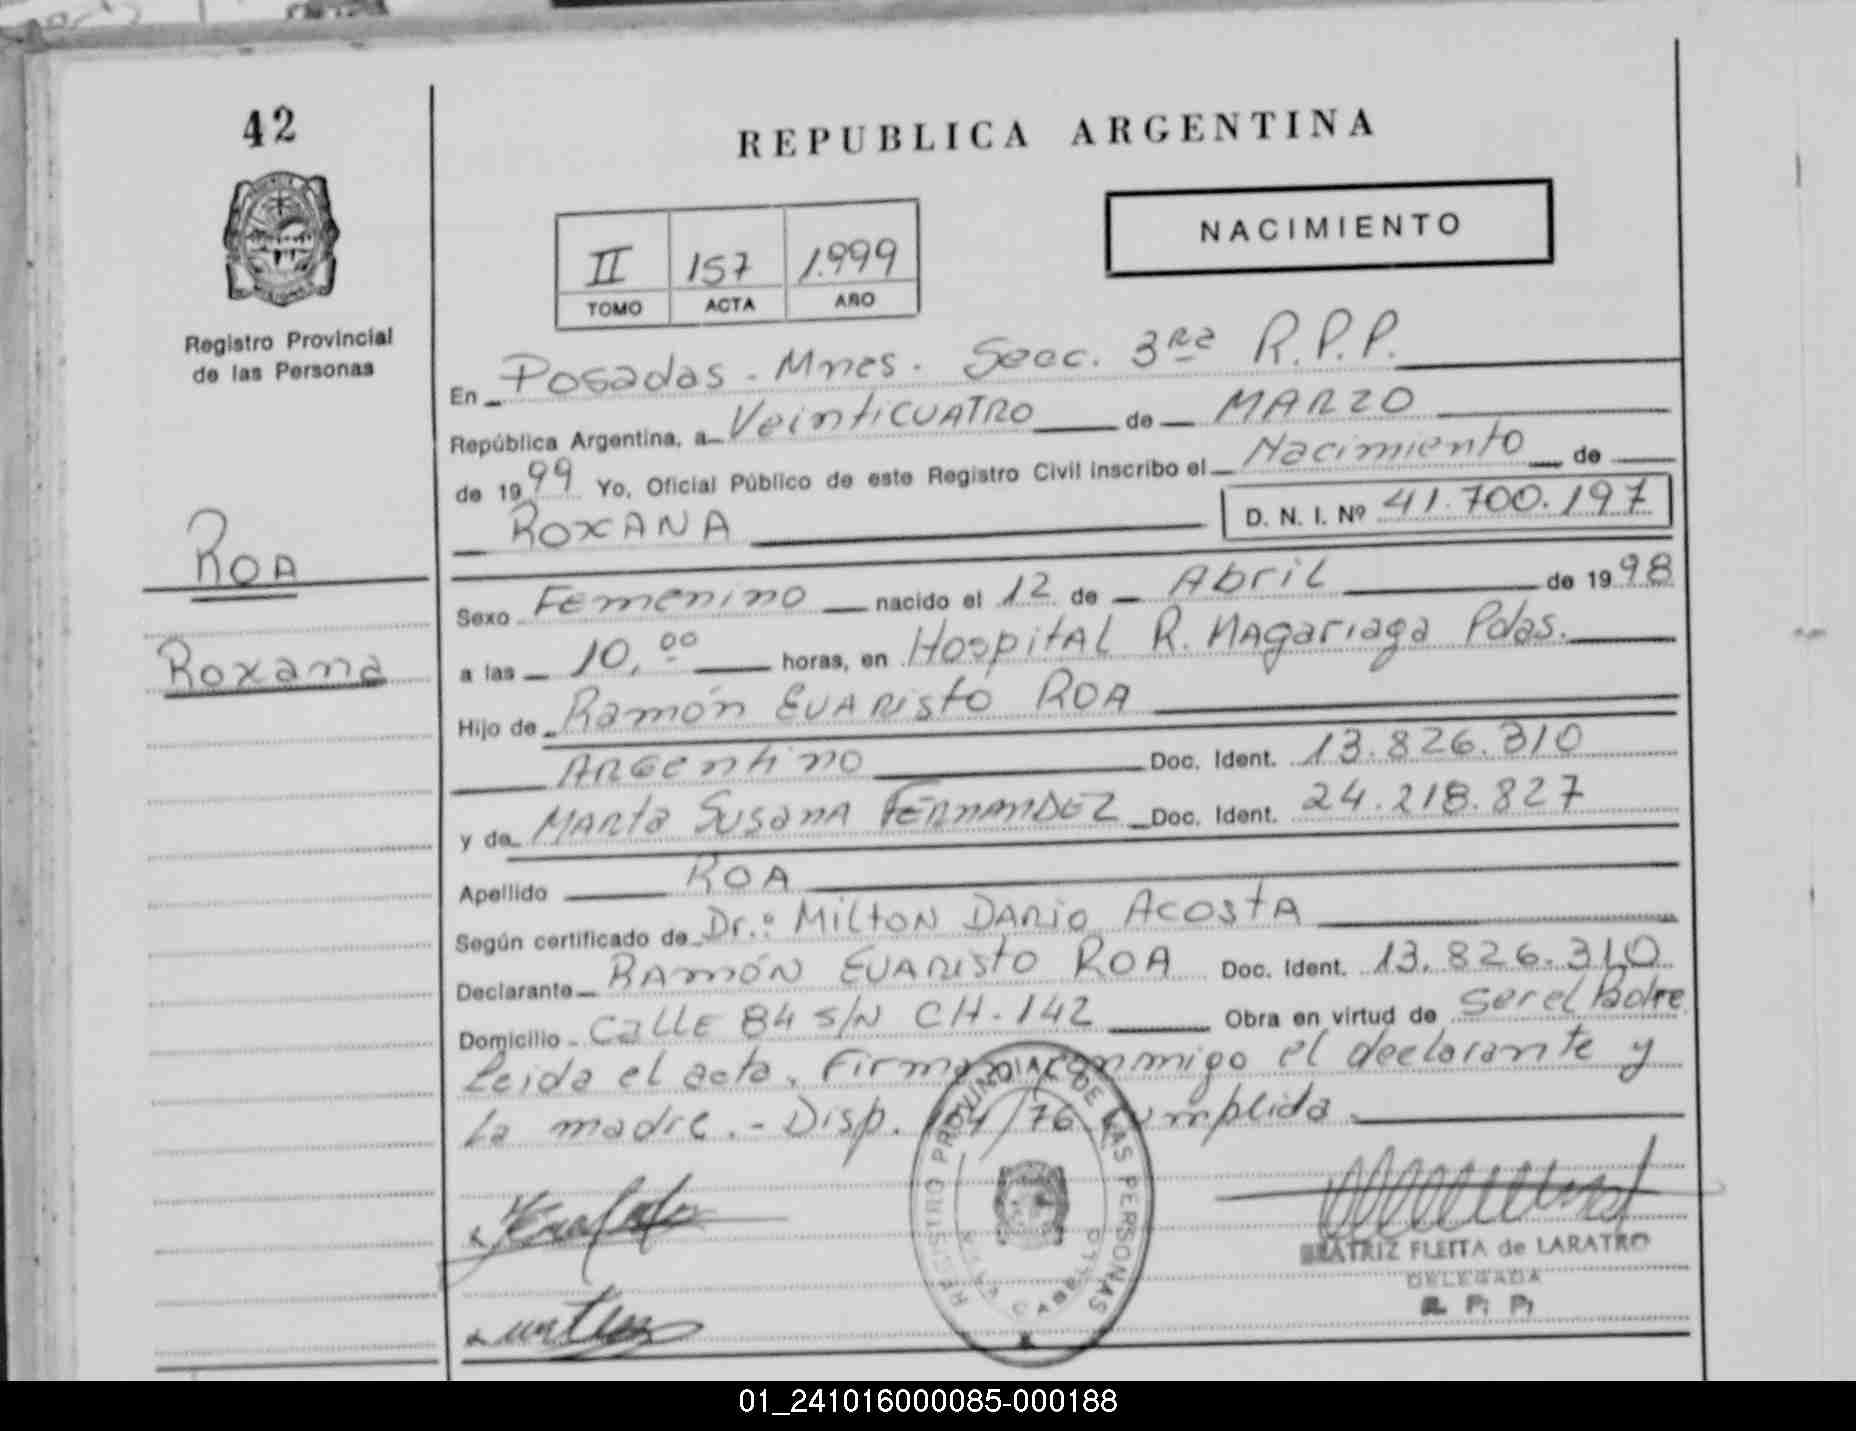 42
REPUBLICA ARGENTINA
NACIMIENTO
II 157 1.999
TOMO ACTA AÑO
Registro Provincial
de las Personas
En Posadas - Mnes. Secc. 3ra R.P.P.
República Argentina, a Veinticuatro de MARZO
de 1999 Yo, Oficial Público de este Registro Civil inscribo el Nacimiento de
ROXANA D. N. I. Nº 41.700.197
ROA
Roxana
Sexo Femenino nacido el 12 de Abril de 1998
a las 10,00 horas, en Hospital R. Magariaga Pdas.
Hijo de Ramón Evaristo ROA
Argentino Doc. Ident. 13.826.310
y de Marta Susana FERNANDEZ Doc. Ident. 24.218.827
Apellido ROA
Según certificado de Dr.: Milton Dario Acosta
Declarante Ramón Evaristo ROA Doc. Ident. 13.826.310
Domicilio Calle 84 s/n CH-142 Obra en virtud de ser el Padre
Leida el acta, Firman conmigo el declarante y
La madre.- Disp. /76 cumplida
REGISTRO PROVINCIAL DE LAS PERSONAS
BEATRIZ FLEITA de LARATRO
DELEGADA
R. P. P.
01_241016000085-000188